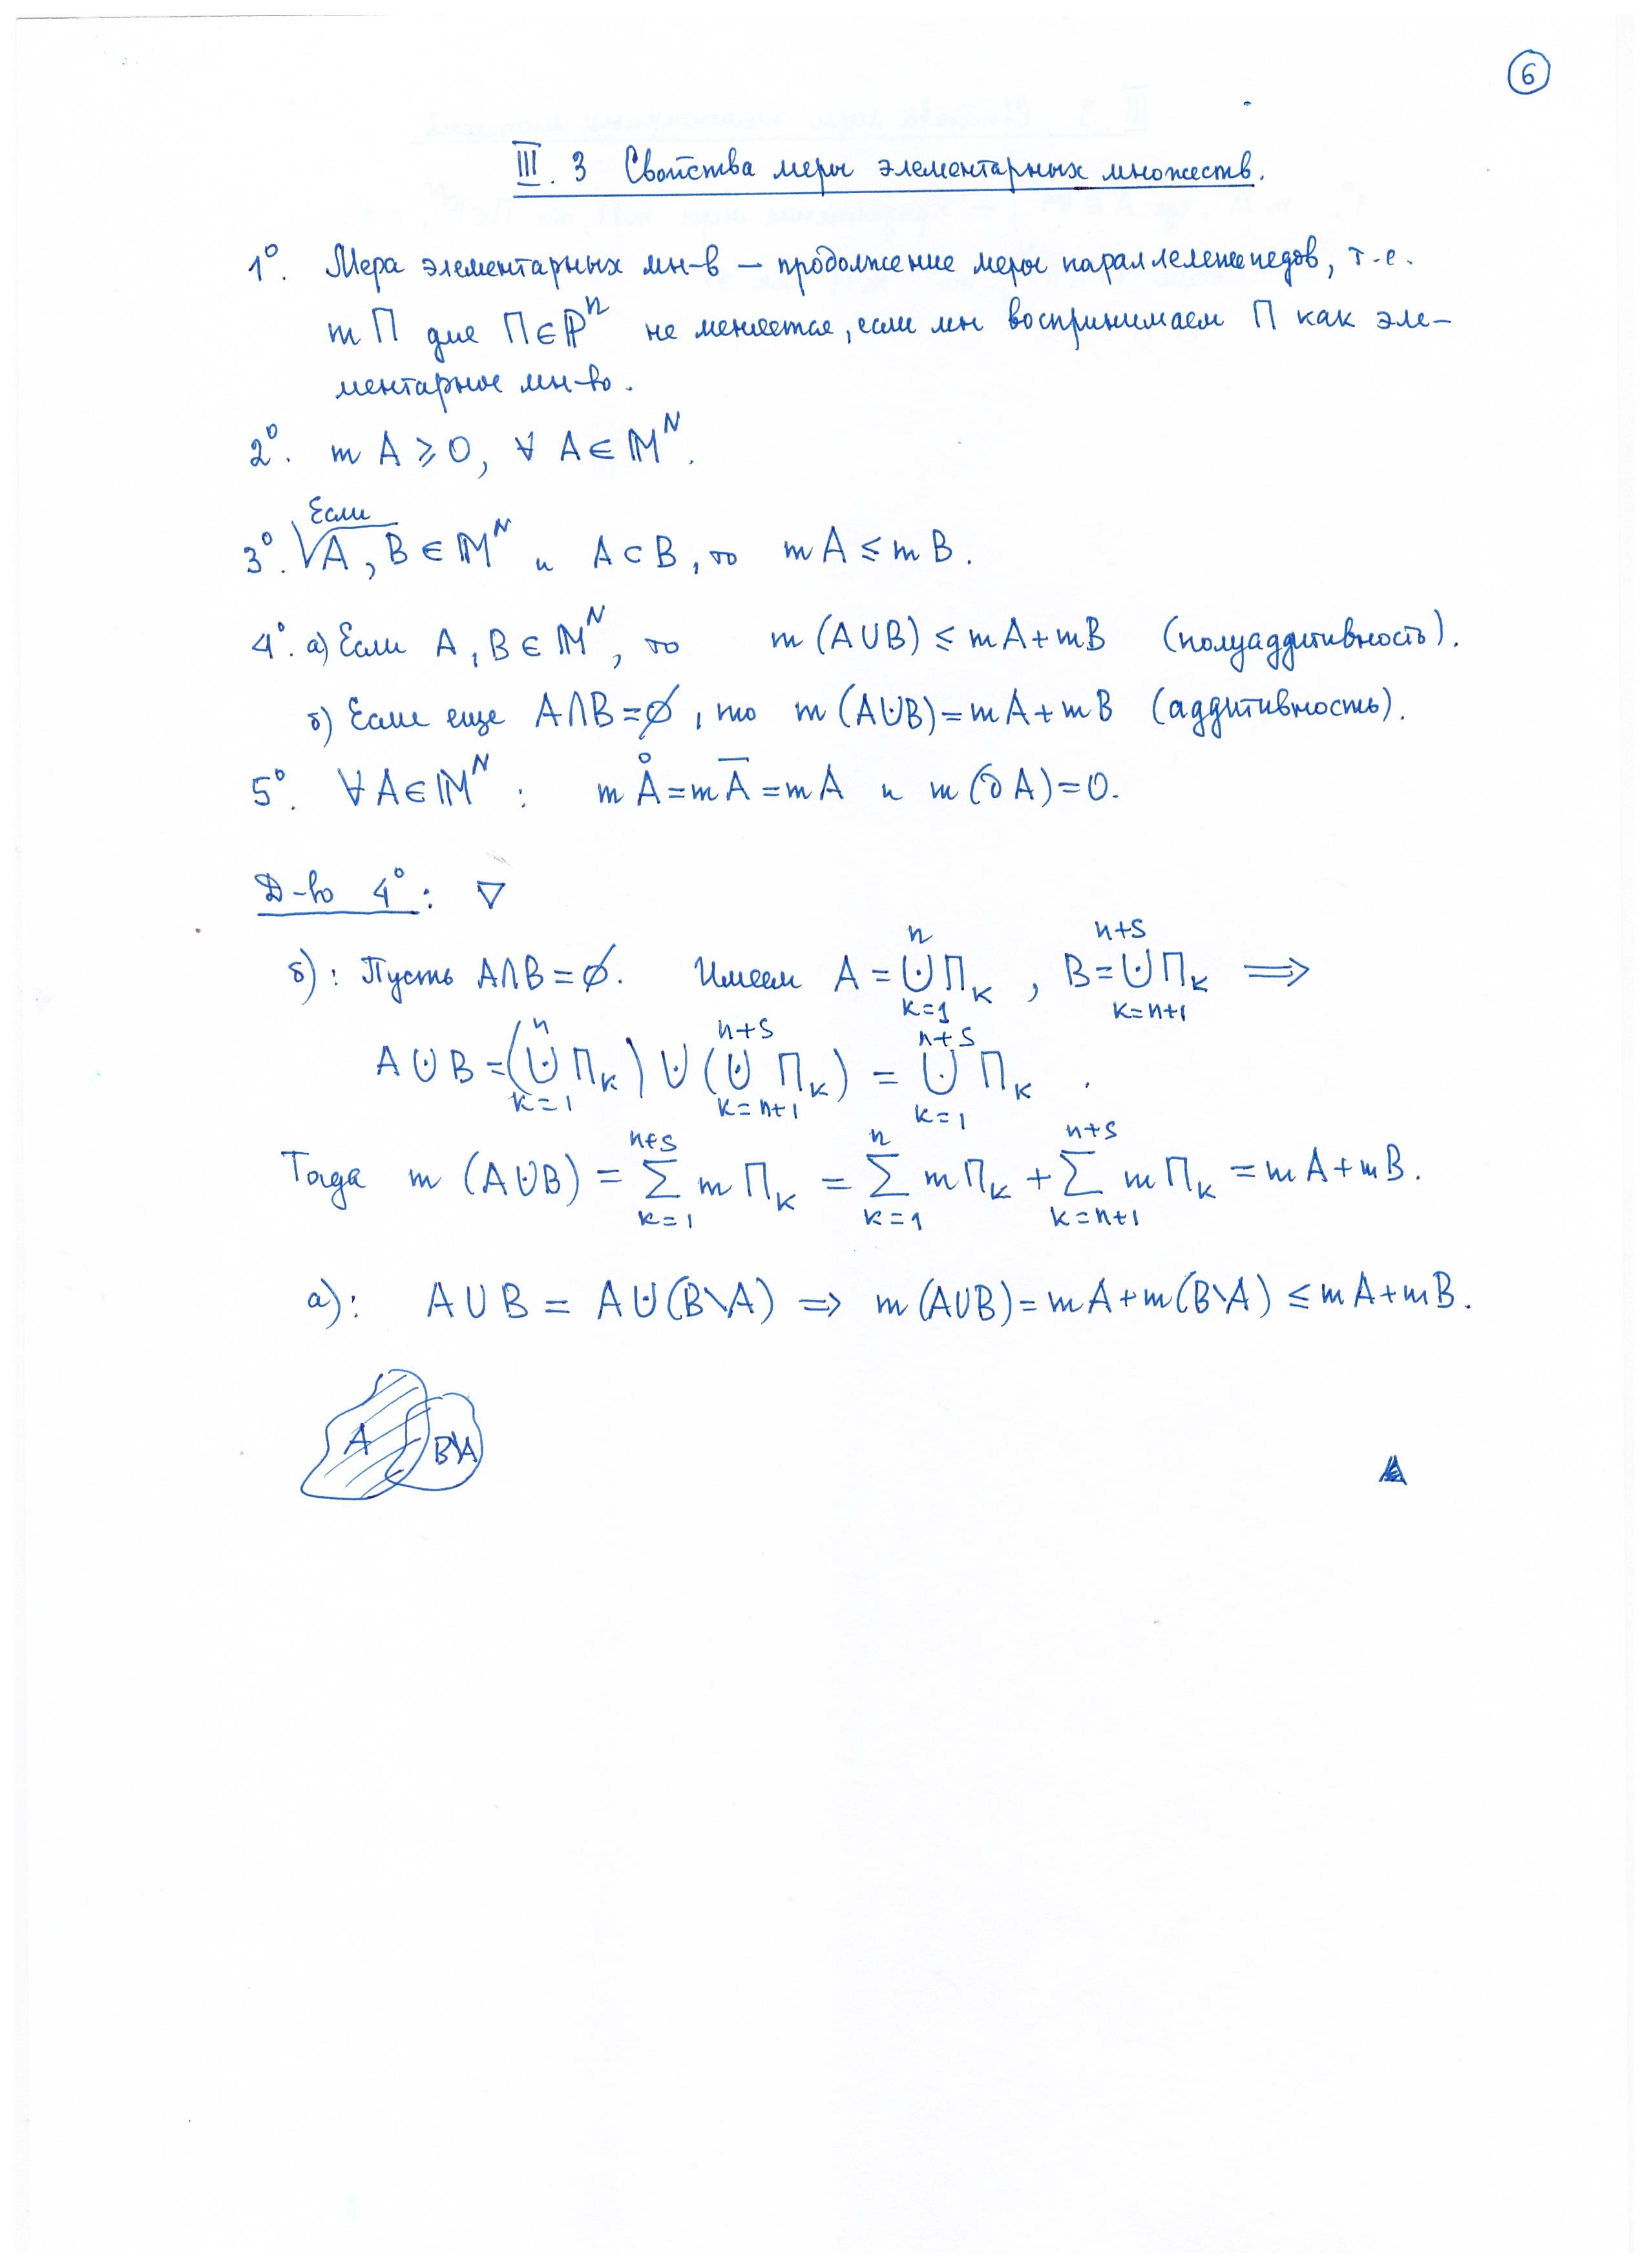 6
III. 3 Свойства меры элементарных множеств.
1°. Мера элементарных мн-в – продолжение меры параллелепипедов, т.е.
m Π для Π ∈ ℙⁿ не меняется, если мы воспринимаем Π как эле-
ментарное мн-во.
2°. m A ⩾ 0, ∀ A ∈ 𝕄ᴺ.
Если
3°. A, B ∈ 𝕄ᴺ и A ⊂ B, то m A ≤ m B.
4°. а) Если A, B ∈ 𝕄ᴺ, то m (A∪B) ≤ mA+mB (полуаддитивность).
б) Если еще A∩B=∅, то m (A⊍B)=mA+mB (аддитивность).
5°. ∀A∈𝕄ᴺ : m Å = m A̅ = mA и m(∂A)=0.
Д-во 4°: ▽
б): Пусть A∩B=∅. Имеем A = ⊍_{k=1}^{n} Π_k , B = ⊍_{k=n+1}^{n+s} Π_k ⟹
A ⊍ B = (⊍_{k=1}^{n} Π_k) ∪ (⊍_{k=n+1}^{n+s} Π_k) = ⊍_{k=1}^{n+s} Π_k .
Тогда m (A⊍B) = ∑_{k=1}^{n+s} m Π_k = ∑_{k=1}^{n} m Π_k + ∑_{k=n+1}^{n+s} m Π_k = m A+mB.
а): A ∪ B = A ⊍ (B\A) ⟹ m (A∪B)= mA+m(B\A) ≤ mA+mB.
A B\A